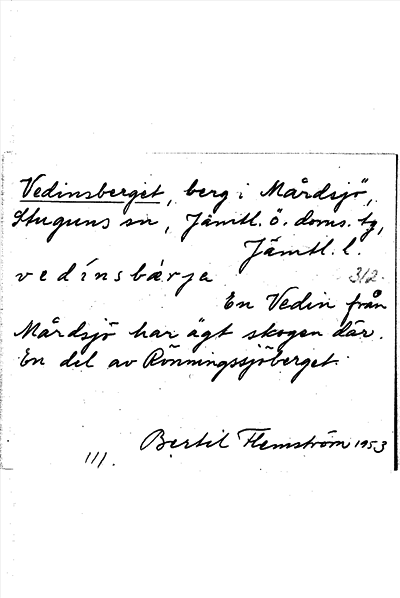 Vedinsberget, berg i Mårdsjö,
Stuguns sn, Jämtl. ö. doms. tg,
Jämtl. l.
vedínsbàrja 312
En Vedin från
Mårdsjö har ägt skogen där.
En del av Rönningssjöberget.
Bertil Flemström 1953
111.